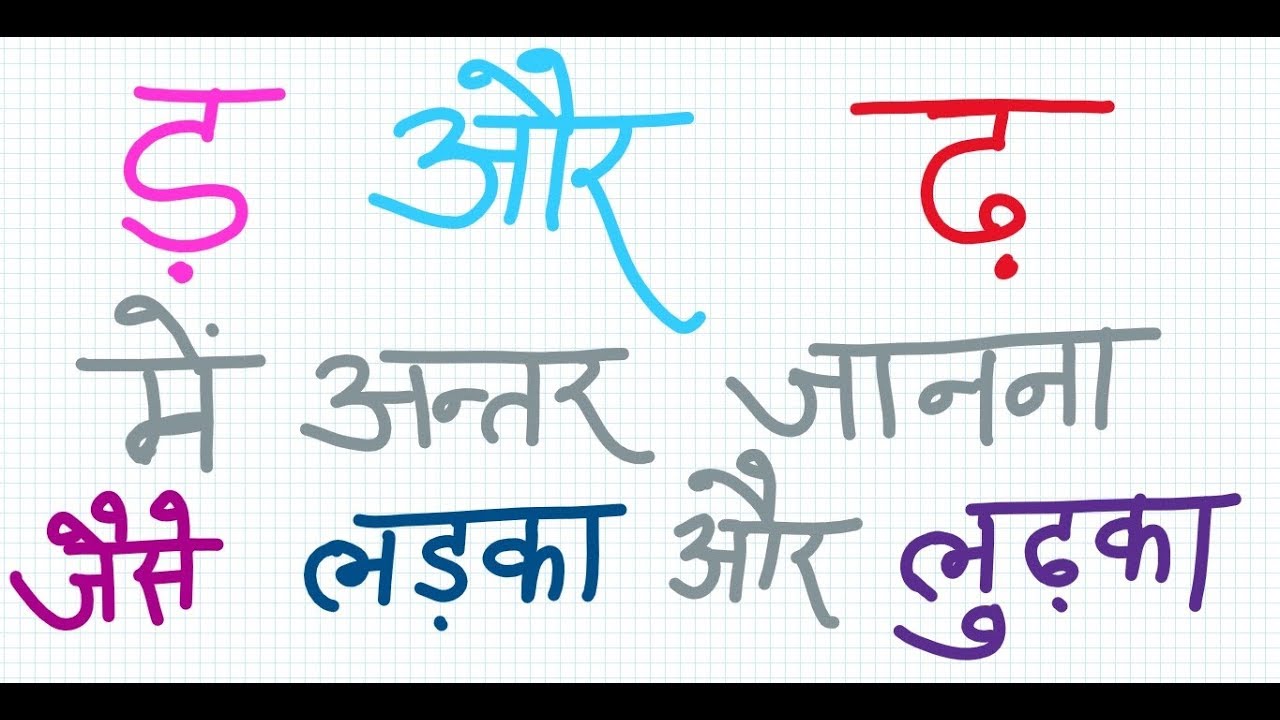 ड़ और ढ़
में अन्तर जानना
जैसे लड़का और लुढ़का